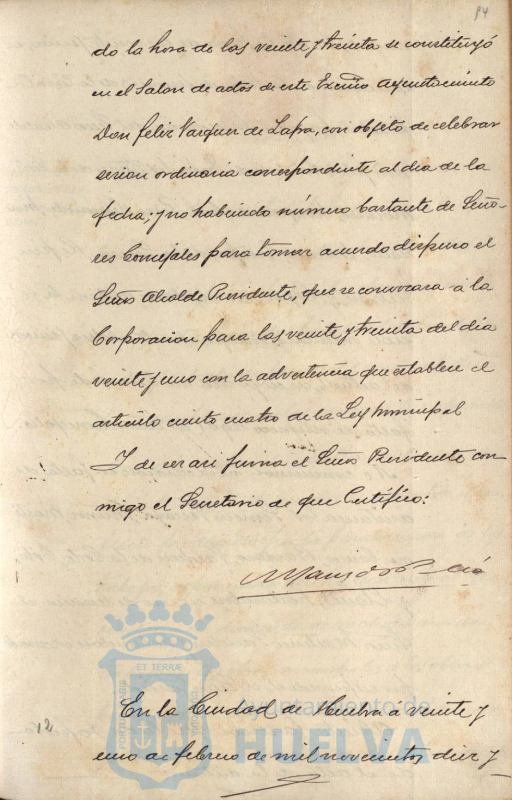 do la hora de las veinte y treinta se constituyó
en el Salon de actos de este Excmo Ayuntamiento
Don Felix Vazquez de Zafra, con objeto de celebrar
sesion ordinaria correspondiente al dia de la
fecha; y no habiendo número bastante de Seño-
res Concejales para tomar acuerdo dispuso el
Señor Alcalde Presidente, que se convocara á la
Corporacion para las veinte y treinta del dia
veinte y uno con la advertencia que establece el
artículo ciento cuatro de la Ley Municipal
Y de ser asi firma el Señor Presidente con-
migo el Secretario de que Certifico:
En la Ciudad de Huelva a veinte y
uno de febrero de mil novecientos diez y
12
Ayuntamiento de
HUELVA
ET TERRÆ